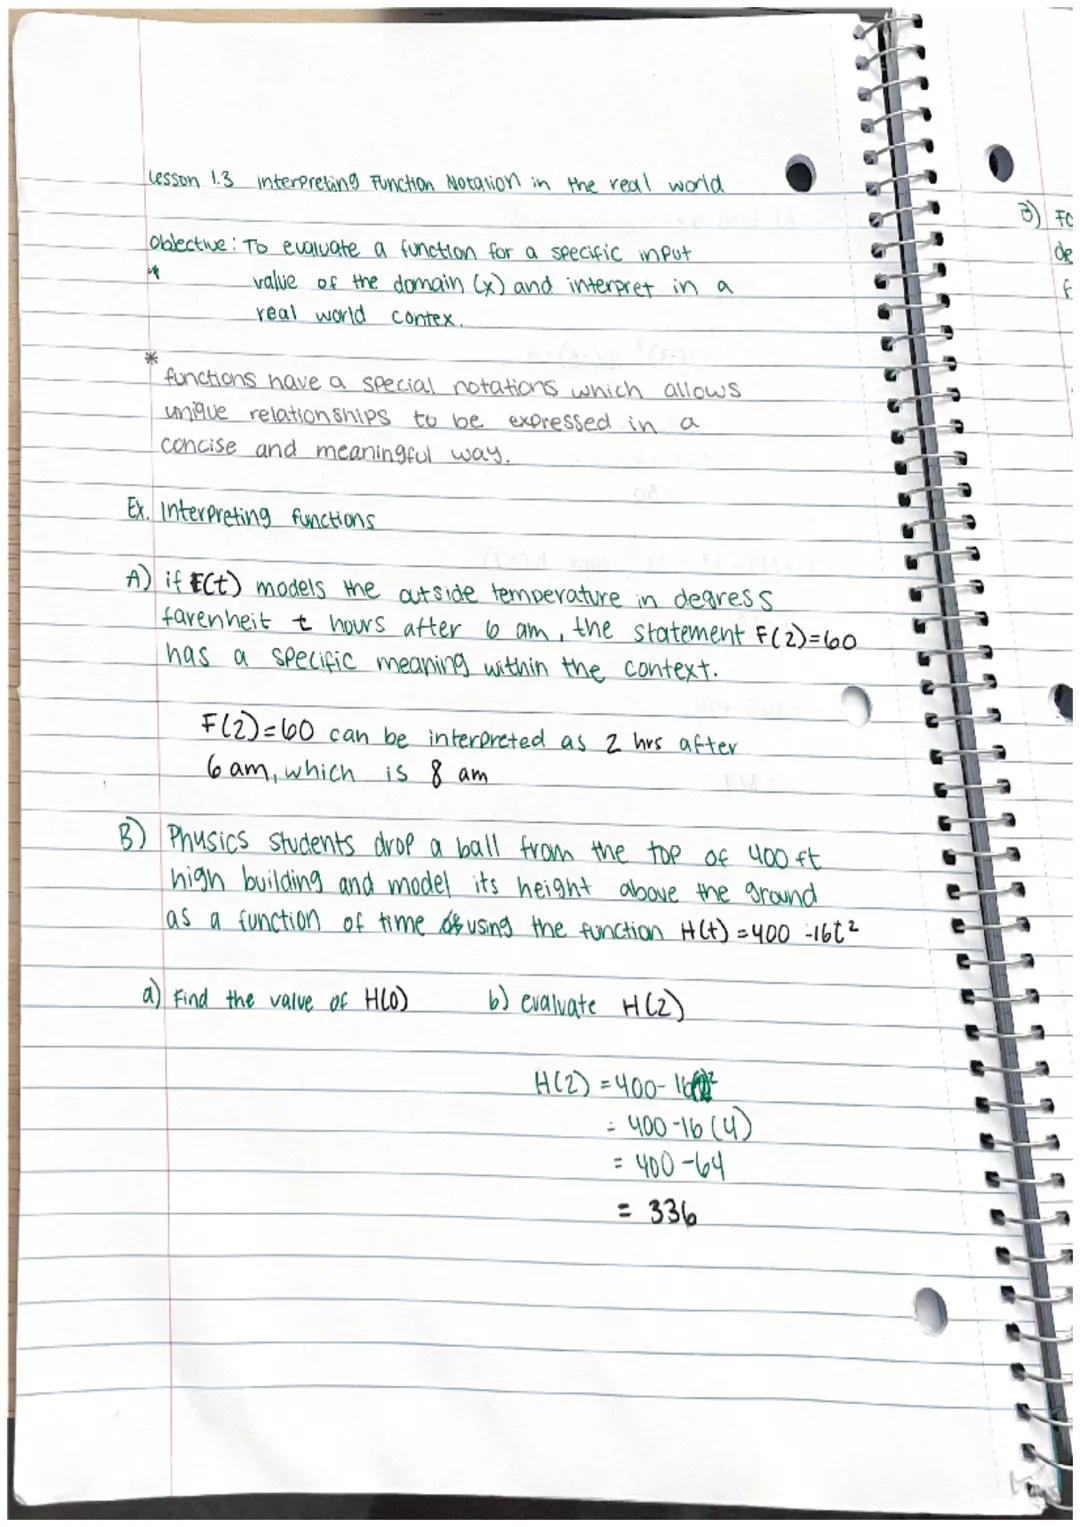 Lesson 1.3 interpreting Function Notation in the real world
Objective: To evaluate a function for a specific input
*
value of the domain (x) and interpret in a
real world contex.
*
functions have a special notations which allows
unique relationships to be expressed in a
concise and meaningful way.
Ex. Interpreting functions
A) if F(t) models the outside temperature in degress
farenheit t hours after 6 am, the statement F(2)=60
has a specific meaning within the context.
F(2)=60 can be interpreted as 2 hrs after
6 am, which is 8 am
B) Physics students drop a ball from the top of 400 ft
high building and model its height above the ground
as a function of time using the function H(t) =400 -16t²
a) Find the value of H(0) b) evaluate H(2)
H(2) =400-16(2)²
= 400-16(4)
= 400-64
= 336
3) Fo
de
f